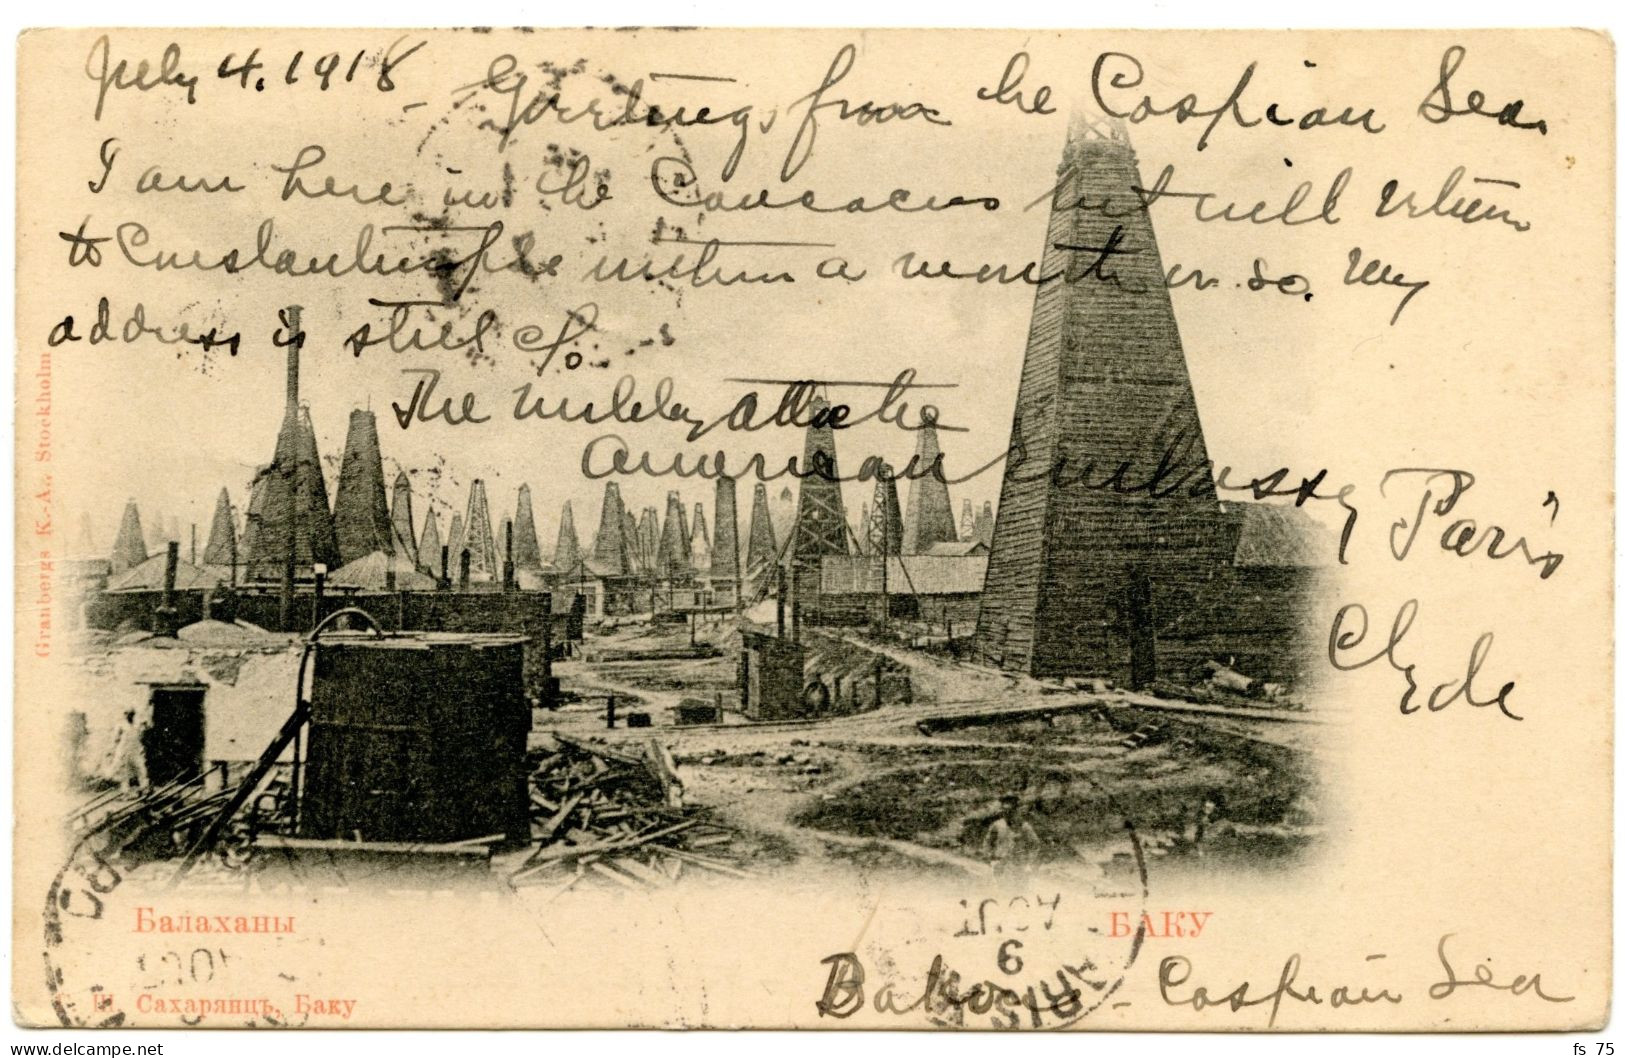 July 4. 1918 - Greetings from the Caspian Sea.
I am here in the Caucacus but will return
to Constantinople within a month or so. My
address is still c/o
The military attache
American Embassy
Paris
Clyde
Granbergs K.-A., Stockholm
Балаханы
БАКУ
Сахарянцъ, Баку
Bakou - Caspian Sea
AOUT
9
PARIS
fs 75